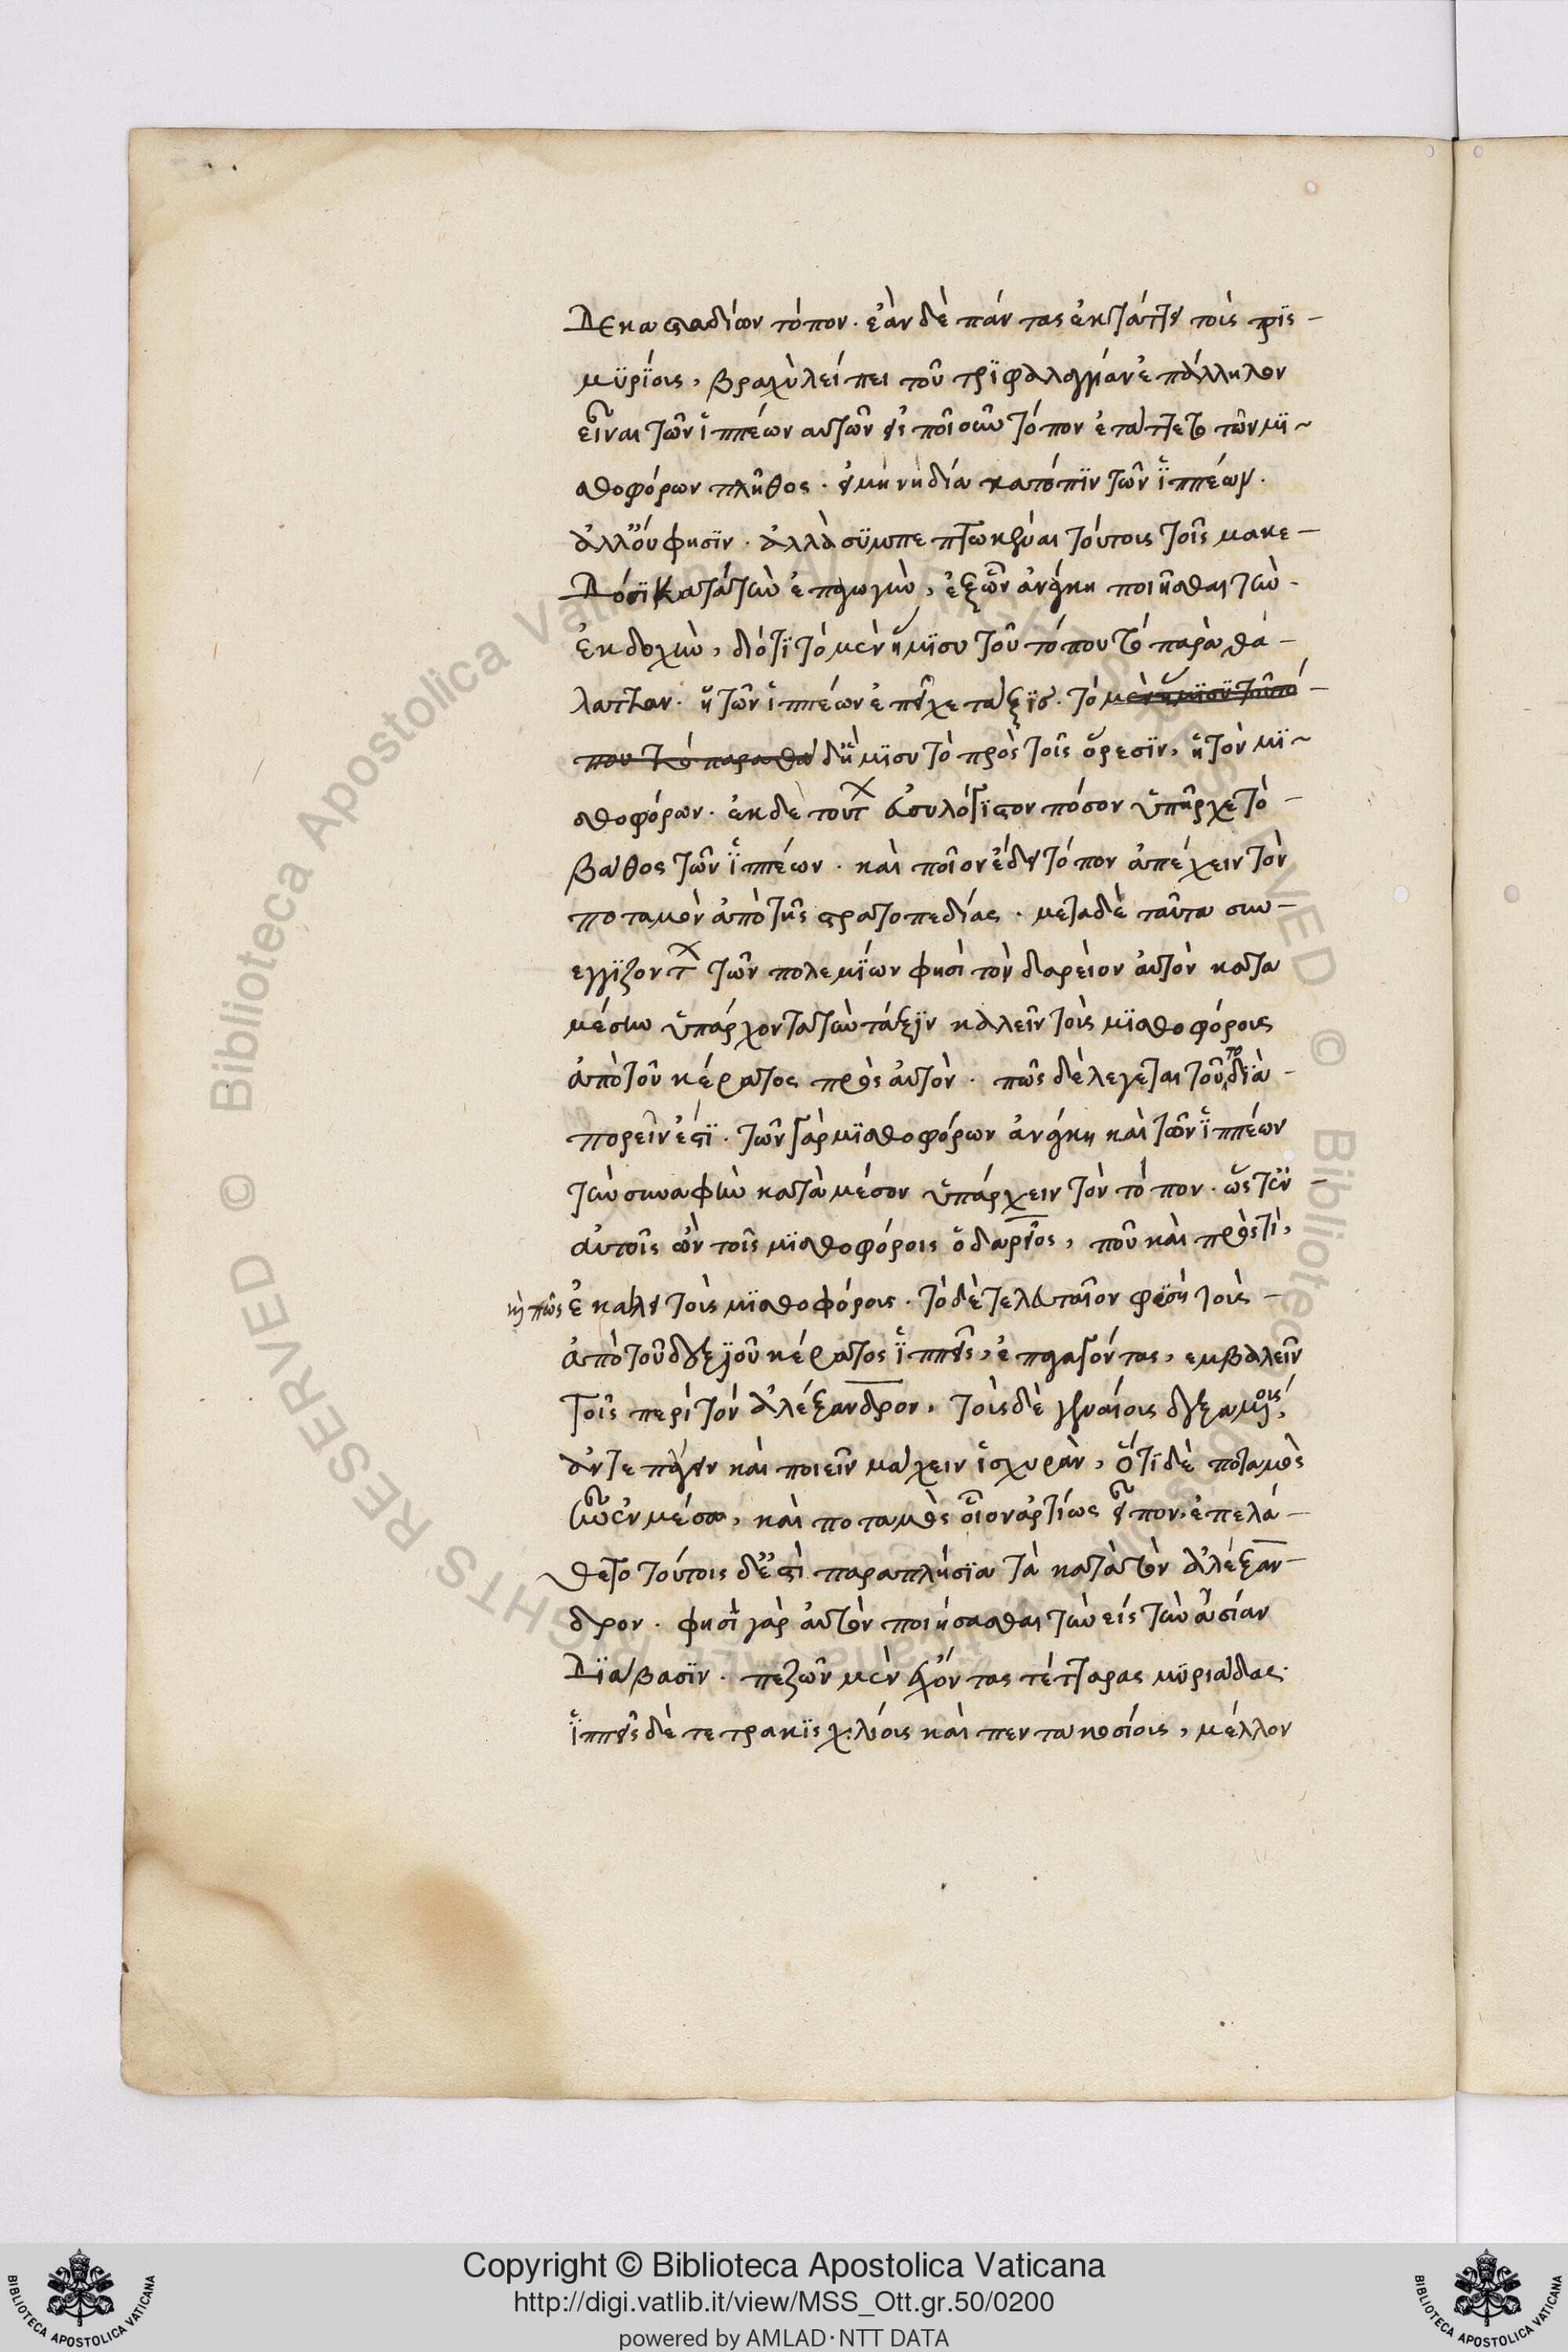 Δεκα σταδίων τόπον. ἐὰν δὲ πάντας ἐκτάττει τοὺς τρϊς-
μϋρίους, βραχὺ λείπει τοῦ τρϊφαλαγγίαν ἐπάλληλον
εἶναι τῶν ἱππέων αὐτῶν εἰ ποῖ οὖν τόπον ἐτάττετο τῶν μϊ-
σθοφόρων πλῆθος. εἰ μὴ νὴ δία κατόπϊν τῶν ἱππέων.
ἀλλ' οὔ φησϊν. ἀλλὰ σϋμπεπτωκέναι τούτους τοῖς μακε-
Δόσϊ κατὰ τὴν ἐπαγωγὴν, ἐξ ὧν ἀνάγκη ποιῆσθαι τὴν-
ἐκδοχὴν, διότϊ τὸ μὲν ἥμϊσυ τοῦ τόπου τὸ παρὰ θά-
λατταν. ἡ τῶν ἱππέων ἐπεῖχε τάξϊς. τὸ μὲν ἥμϊσϋ τοῦ τό-
που τὸ παρα θά δ' ἥμϊσυ τὸ πρὸς τοῖς ὄρεσϊν, ἡ τὸν μϊ-
σθοφόρων. ἐκ δὲ τούτ ευσυλόγϊστον πόσον ὑπῆρχε τὸ-
βάθος τῶν ἱππέων. καὶ ποῖον ἔδει τόπον ἀπέχειν τὸν
ποταμὸν ἀπὸ τῆς στρατοπεδίας. μετα δὲ ταῦτα συν-
εγγϊζοντ τῶν πολεμϊων φησὶ τὸν δαρεῖον ἀυτὸν κατα
μέσην ὑπάρχοντα τὴν τάξϊν καλεῖν τοὺς μϊσθοφόρους
ἀπὸ τοῦ κέρατος πρὸς ἀυτὸν. πῶς δὲ λεγεται τοῦ το δϊὰ-
πορεῖν ἐστϊ. τῶν γὰρ μϊσθοφόρων ἀνάγκη καὶ τῶν ἱππέων
τὴν συναφὴν κατὰ μέσον ὑπάρχειν τὸν τόπον. ὥστ' ἐν-
ἀυτοῖς ὢν τοῖς μϊσθοφόροις ὁ δαρεῖος, ποῦ καὶ πρὸς τὶ,
κὶ πῶς ἐκάλει τοὺς μϊσθοφόρους. τὸ δὲ τελευταῖον φϊσὴ τοὺς-
ἀπὸ τοῦ δεξϊοῦ κέρατος ἱππεῖς, ἐπαγαγόντας, εμβαλεῖν
τοῖς περὶ τὸν ἀλέξανδρον, τοὺς δὲ γεναίους δεξαμένους,
ἀντεπάγειν καὶ ποιεῖν μάχειν ἰσχυρὰν, ὅτϊ δὲ ποταμὸς
ἦν ἐν μέσω, καὶ ποταμὸς οἷον ἀρτίως εἶπον, ἐπελά-
θετο τούτοις δ' ἐστὶ παραπλήσϊα τὰ κατὰ τὸν ἀλέξαν-
δρον. φησὶ γὰρ ἀυτὸν ποιήσασθαι τὴν εἰς τὴν ἀσίαν
Δϊάβασϊν. πεζῶν μὲν ἔχόντας τέτταρας μϋριάδας.
ἱππεῖς δὲ τετρακϊςχιλίους καὶ πεντακοσίους, μέλλον
Copyright © Biblioteca Apostolica Vaticana
http://digi.vatlib.it/view/MSS_Ott.gr.50/0200
powered by AMLAD·NTT DATA